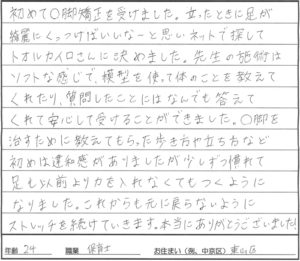 初めて〇脚矯正を受けました。立ったときに足が
綺麗にくっつけばいいなーと思いネットで探して
トオルカイロさんに決めました。先生の施術は
ソフトな感じで、模型を使って体のことを教えて
くれたり、質問したことにはなんでも答えて
くれて安心して受けることができました。〇脚を
治すために教えてもらった歩き方や立ち方など
初めは違和感がありましたが少しずつ慣れて
足も以前より力を入れなくてもつくように
なりました。これからも元に戻らないように
ストレッチを続けていきます。本当にありがとうございました!
年齢 24 職業 保育士 お住まい(例、中京区) 東山区